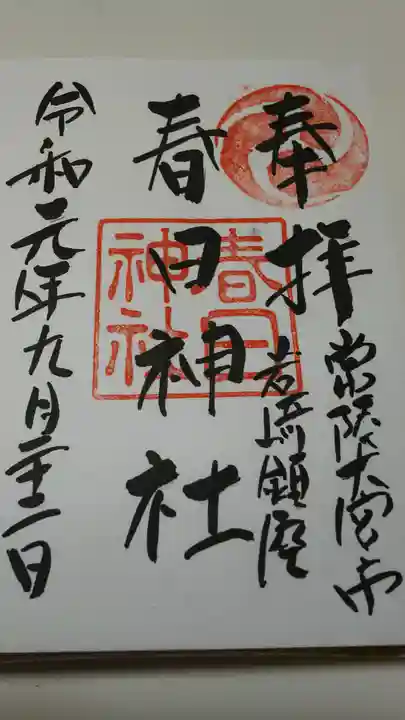 奉拝
常陸大宮市
岩崎鎮座
春日神社
春日神社
令和元年九月二十二日